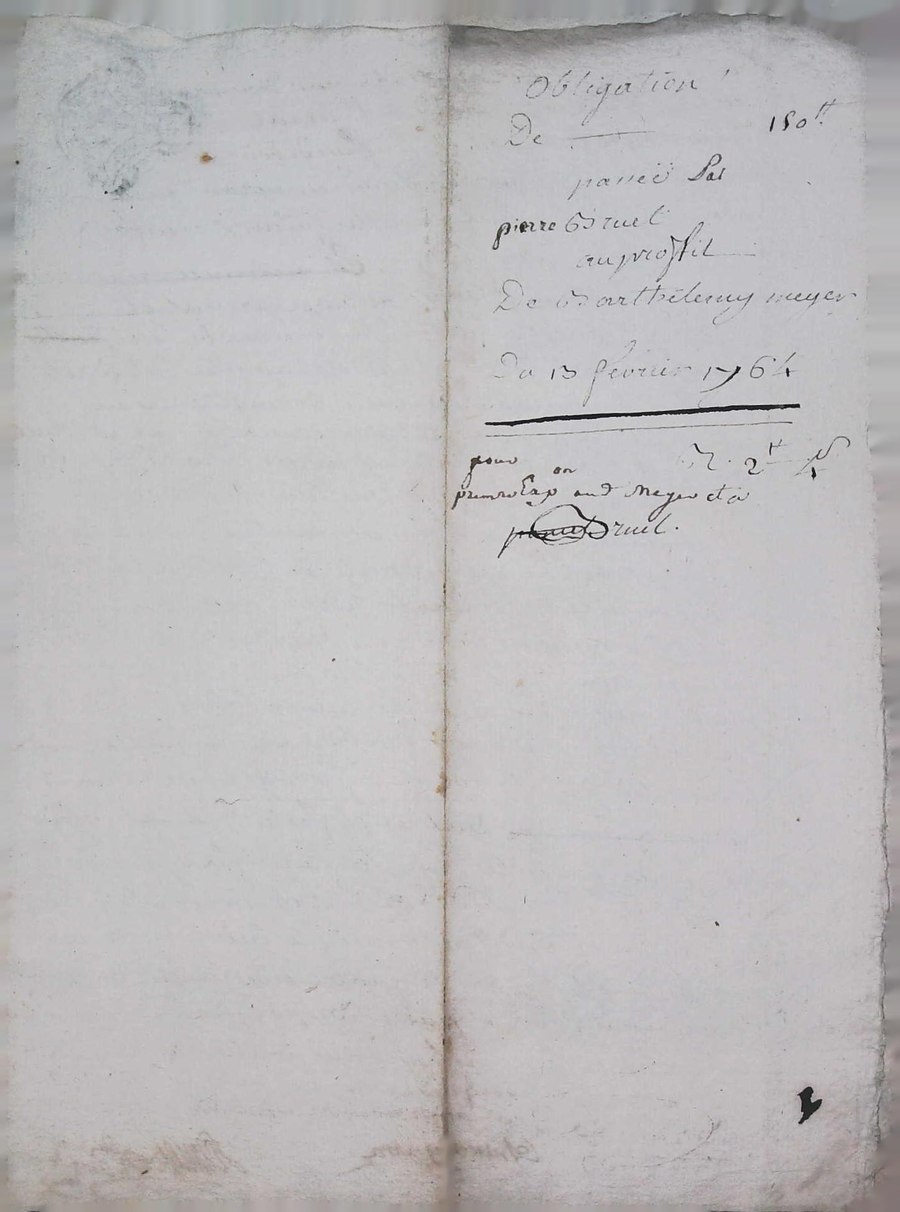 Obligation
De 150tt
passeé Par
pierre Bruel
au proffit
De Barthelemy meyer
Du 13 fevrier 1764
pour 2tt
premre Exp on and Meyer et a
Bruel.